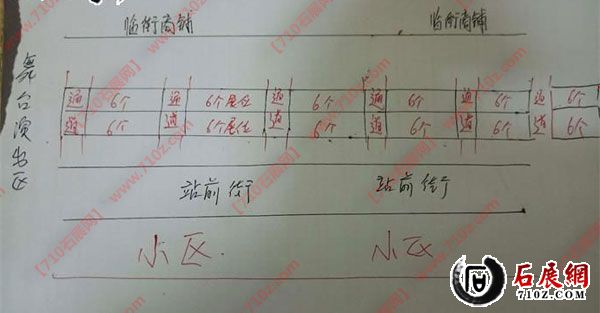 临街商铺 临街商铺
舞台演出区
通 6个 通 6个展位 通 6个 通 6个 通 6个 通 6个
道 6个 道 6个展位 道 6个 道 6个 道 6个 道 6个
站前街 站前街
小区 小区
【710石展网】www.710z.com
石展網
710Z.COM